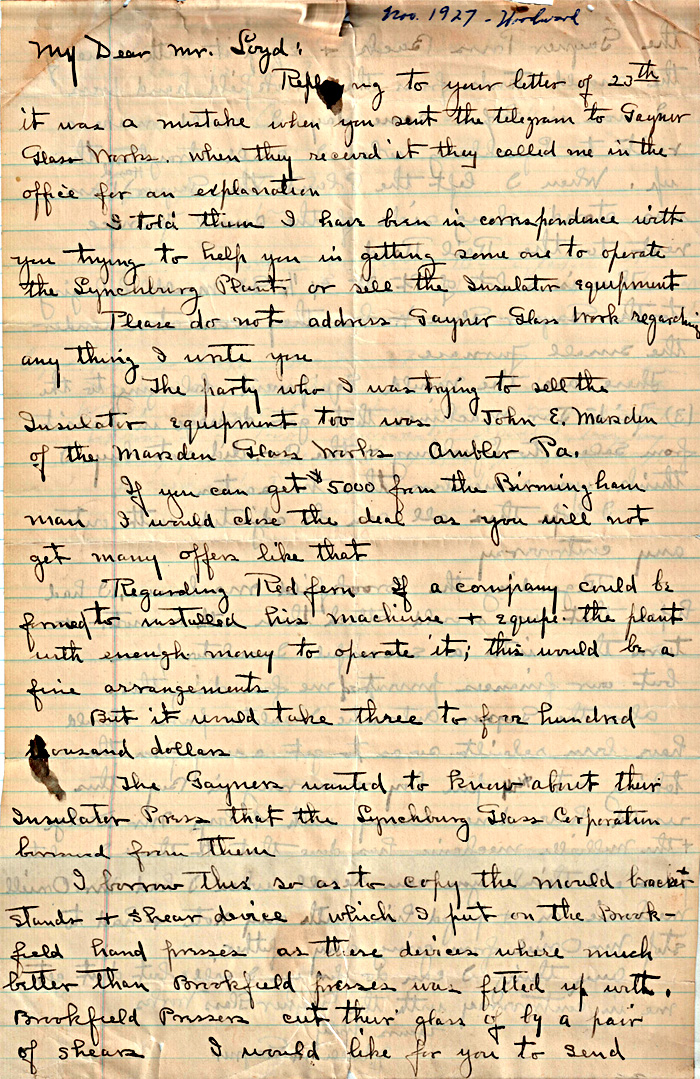 Nov. 1927 - Woodward
My Dear Mr. Loyd:
Replying to your letter of 23th
it was a mistake when you sent the telegram to Gayner
Glass Works. when they receiv'd it they called me in the
office for an explanation
I told them I have been in correspondence with
you trying to help you in getting some one to operate
the Lynchburg Plant or sell the Insulator equipment
Please do not address Gayner Glass Work regarding
any thing I write you
The party who I was trying to sell the
Insulator equipment too was John E. Marsden
of the Marsden Glass Works Ambler Pa.
If you can get $5000 from the Birmingham
man I would close the deal as you will not
get many offers like that
Regarding Redfern If a company could be
formed to installed his machine + equipe. the plant
with enough money to operate it; this would be a
fine arrangements
But it would take three to four hundred
thousand dollars
The Gayners wanted to know about their
Insulator Press that the Lynchburg Glass Corporation
borrowed from them
I borrow this so as to copy the mould bracket
stands + shear device which I put on the Brook-
field hand presses as these devices where much
better than Brookfield presses was fitted up with.
Brookfield Pressers cut their glass of by a pair
of shears I would like for you to send